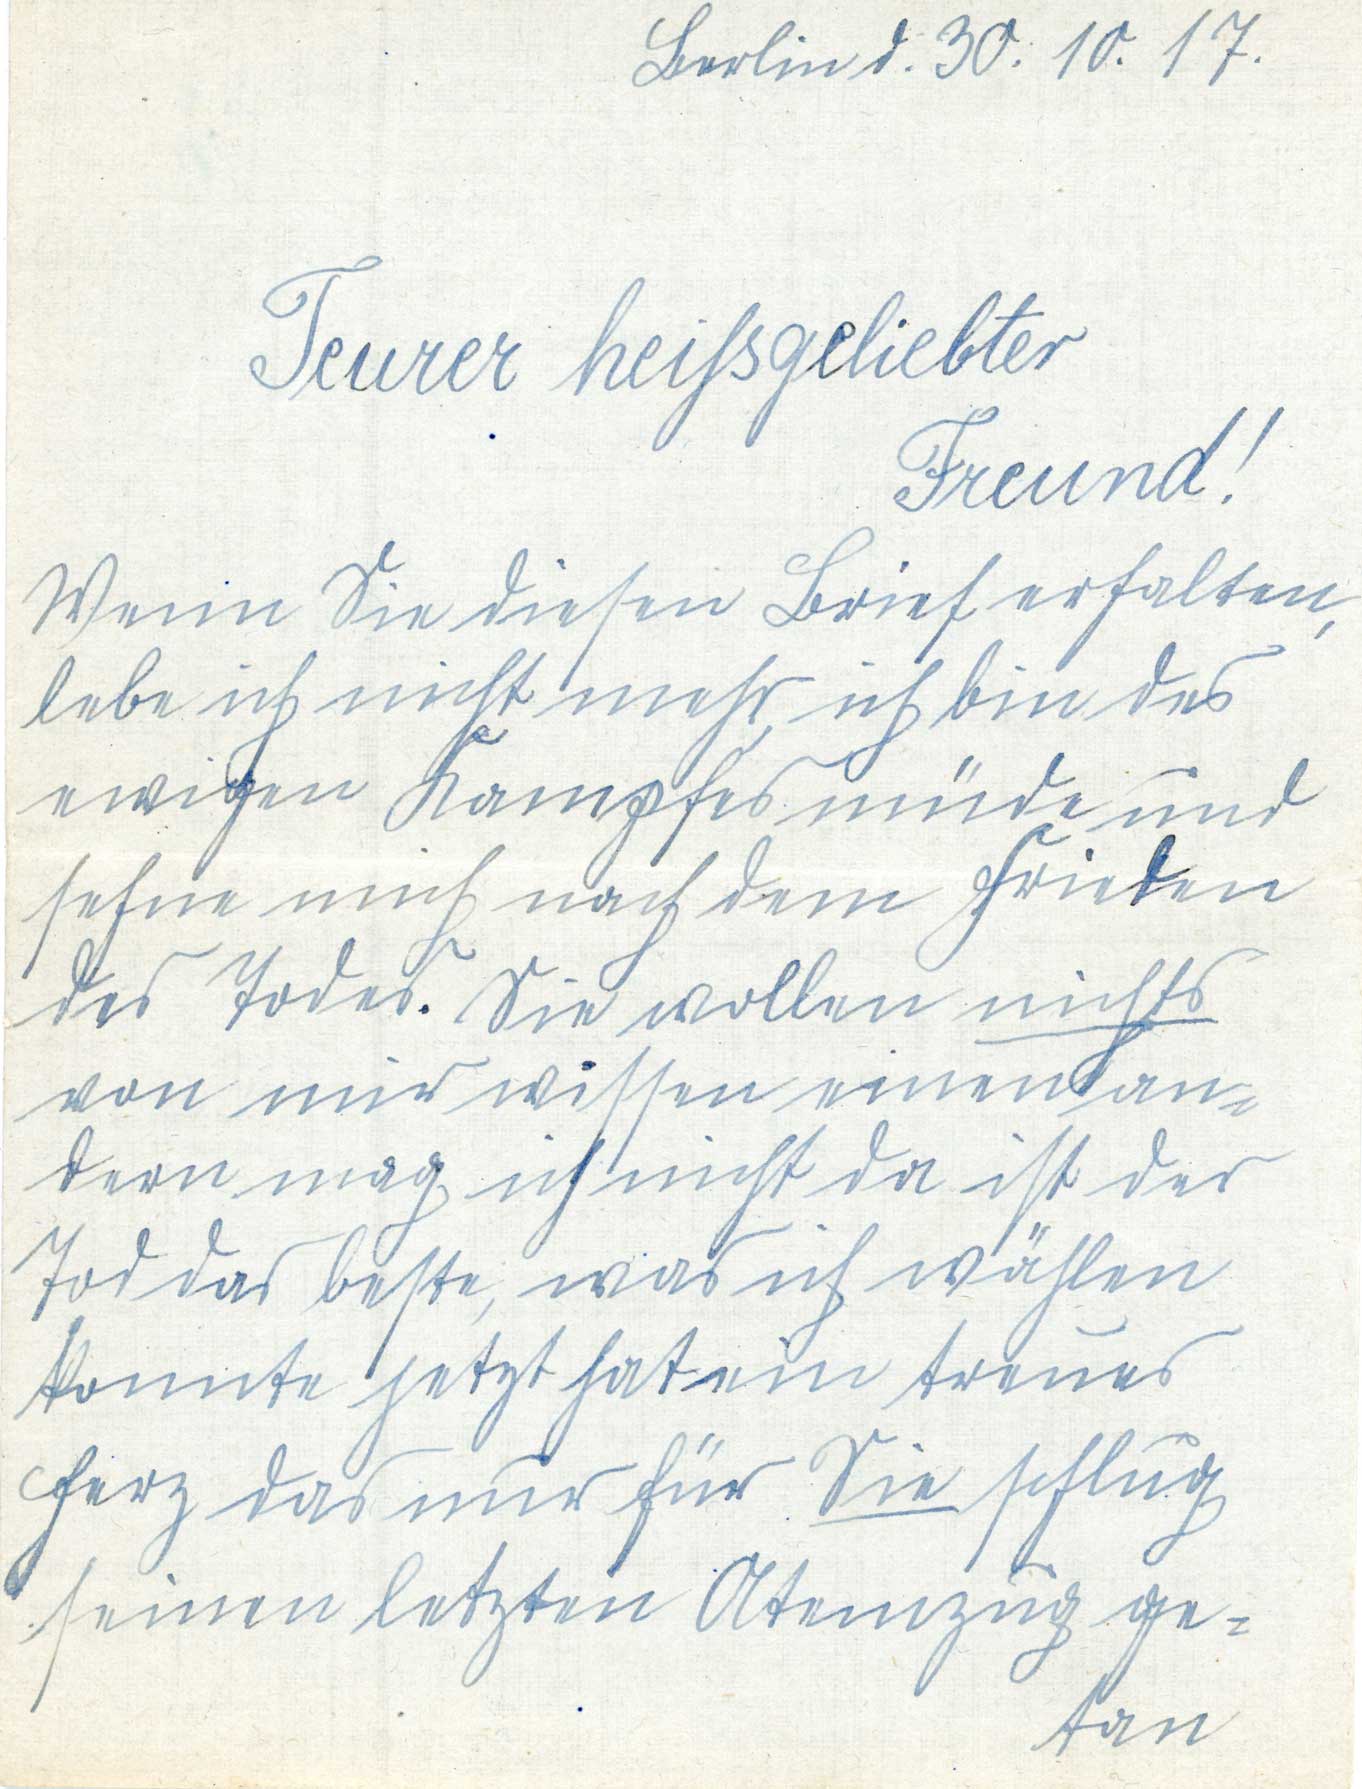 Berlin d. 30. 10. 17.
Teurer heissgeliebter
Freund!
Wenn Sie diesen Brief erhalten,
lebe ich nicht mehr, ich bin des
ewigen Kampfes müde und
sehne mich nach dem Frieden
des Todes. Sie wollen nichts
von mir wissen einen an-
dern mag ich nicht da ist der
Tod das beste, was ich wählen
konnte jetzt hat ein treues
Herz das nur für Sie schlug
seinen letzten Atemzug ge-
tan